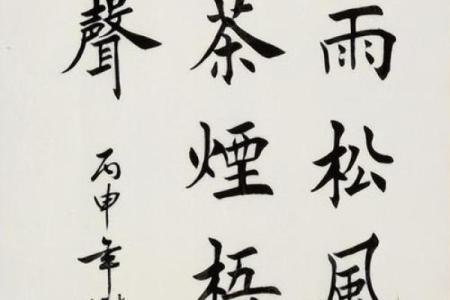 雨松風
茶煙梧
聲
丙申年